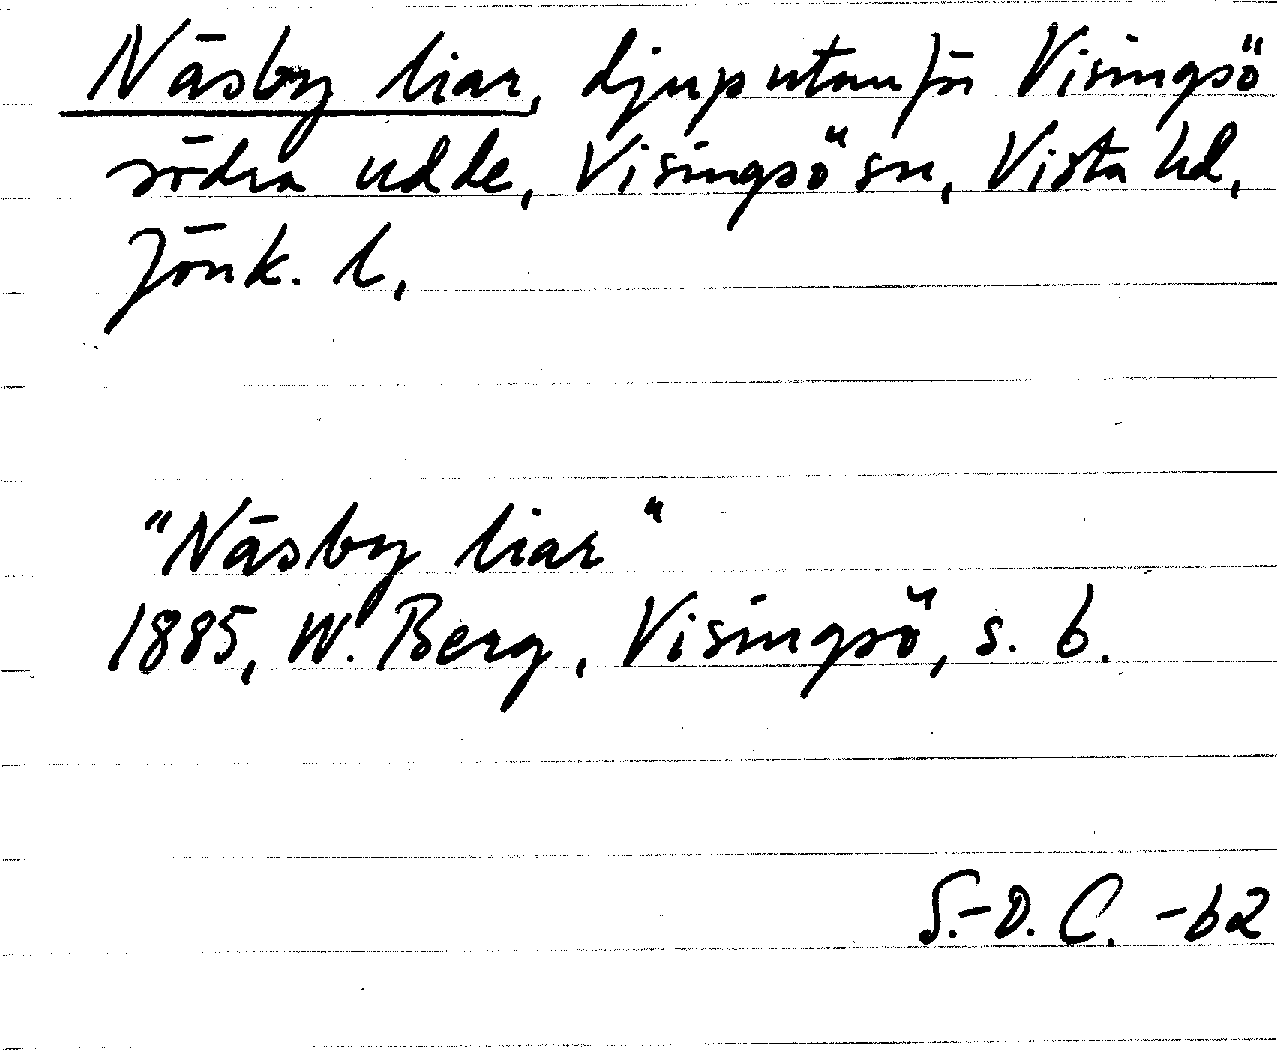 Näsby liar, djup utanför Visingsö
södra udde, Visingsö sn, Vista hd,
Jönk. l,
"Näsby liar"
1885, W. Berg, Visingsö, s. 6.
S.-O. C. -62